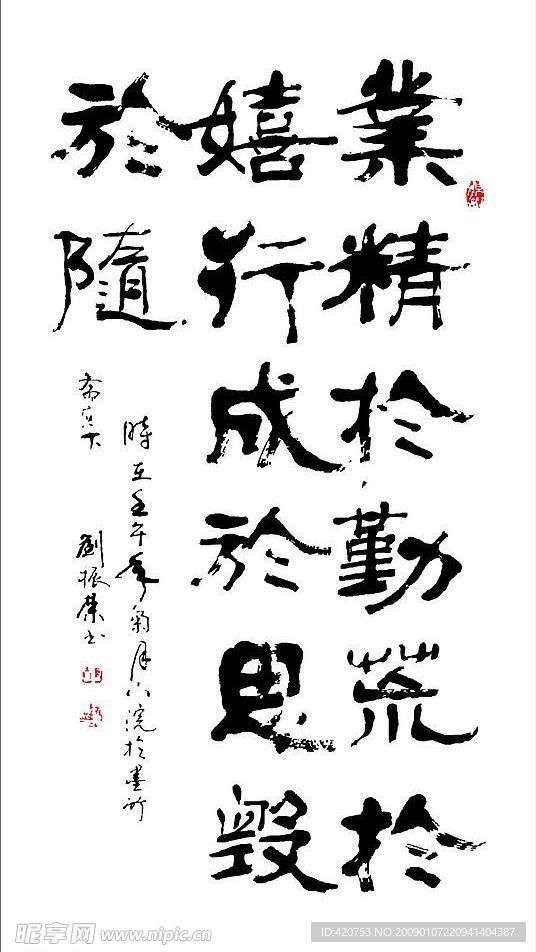 業精於勤荒於
嬉行成於思毀
於隨
時在壬午年菊月
劉振榮书
昵享网 www.nipic.cn
ID:420753 NO:20090107220941404387